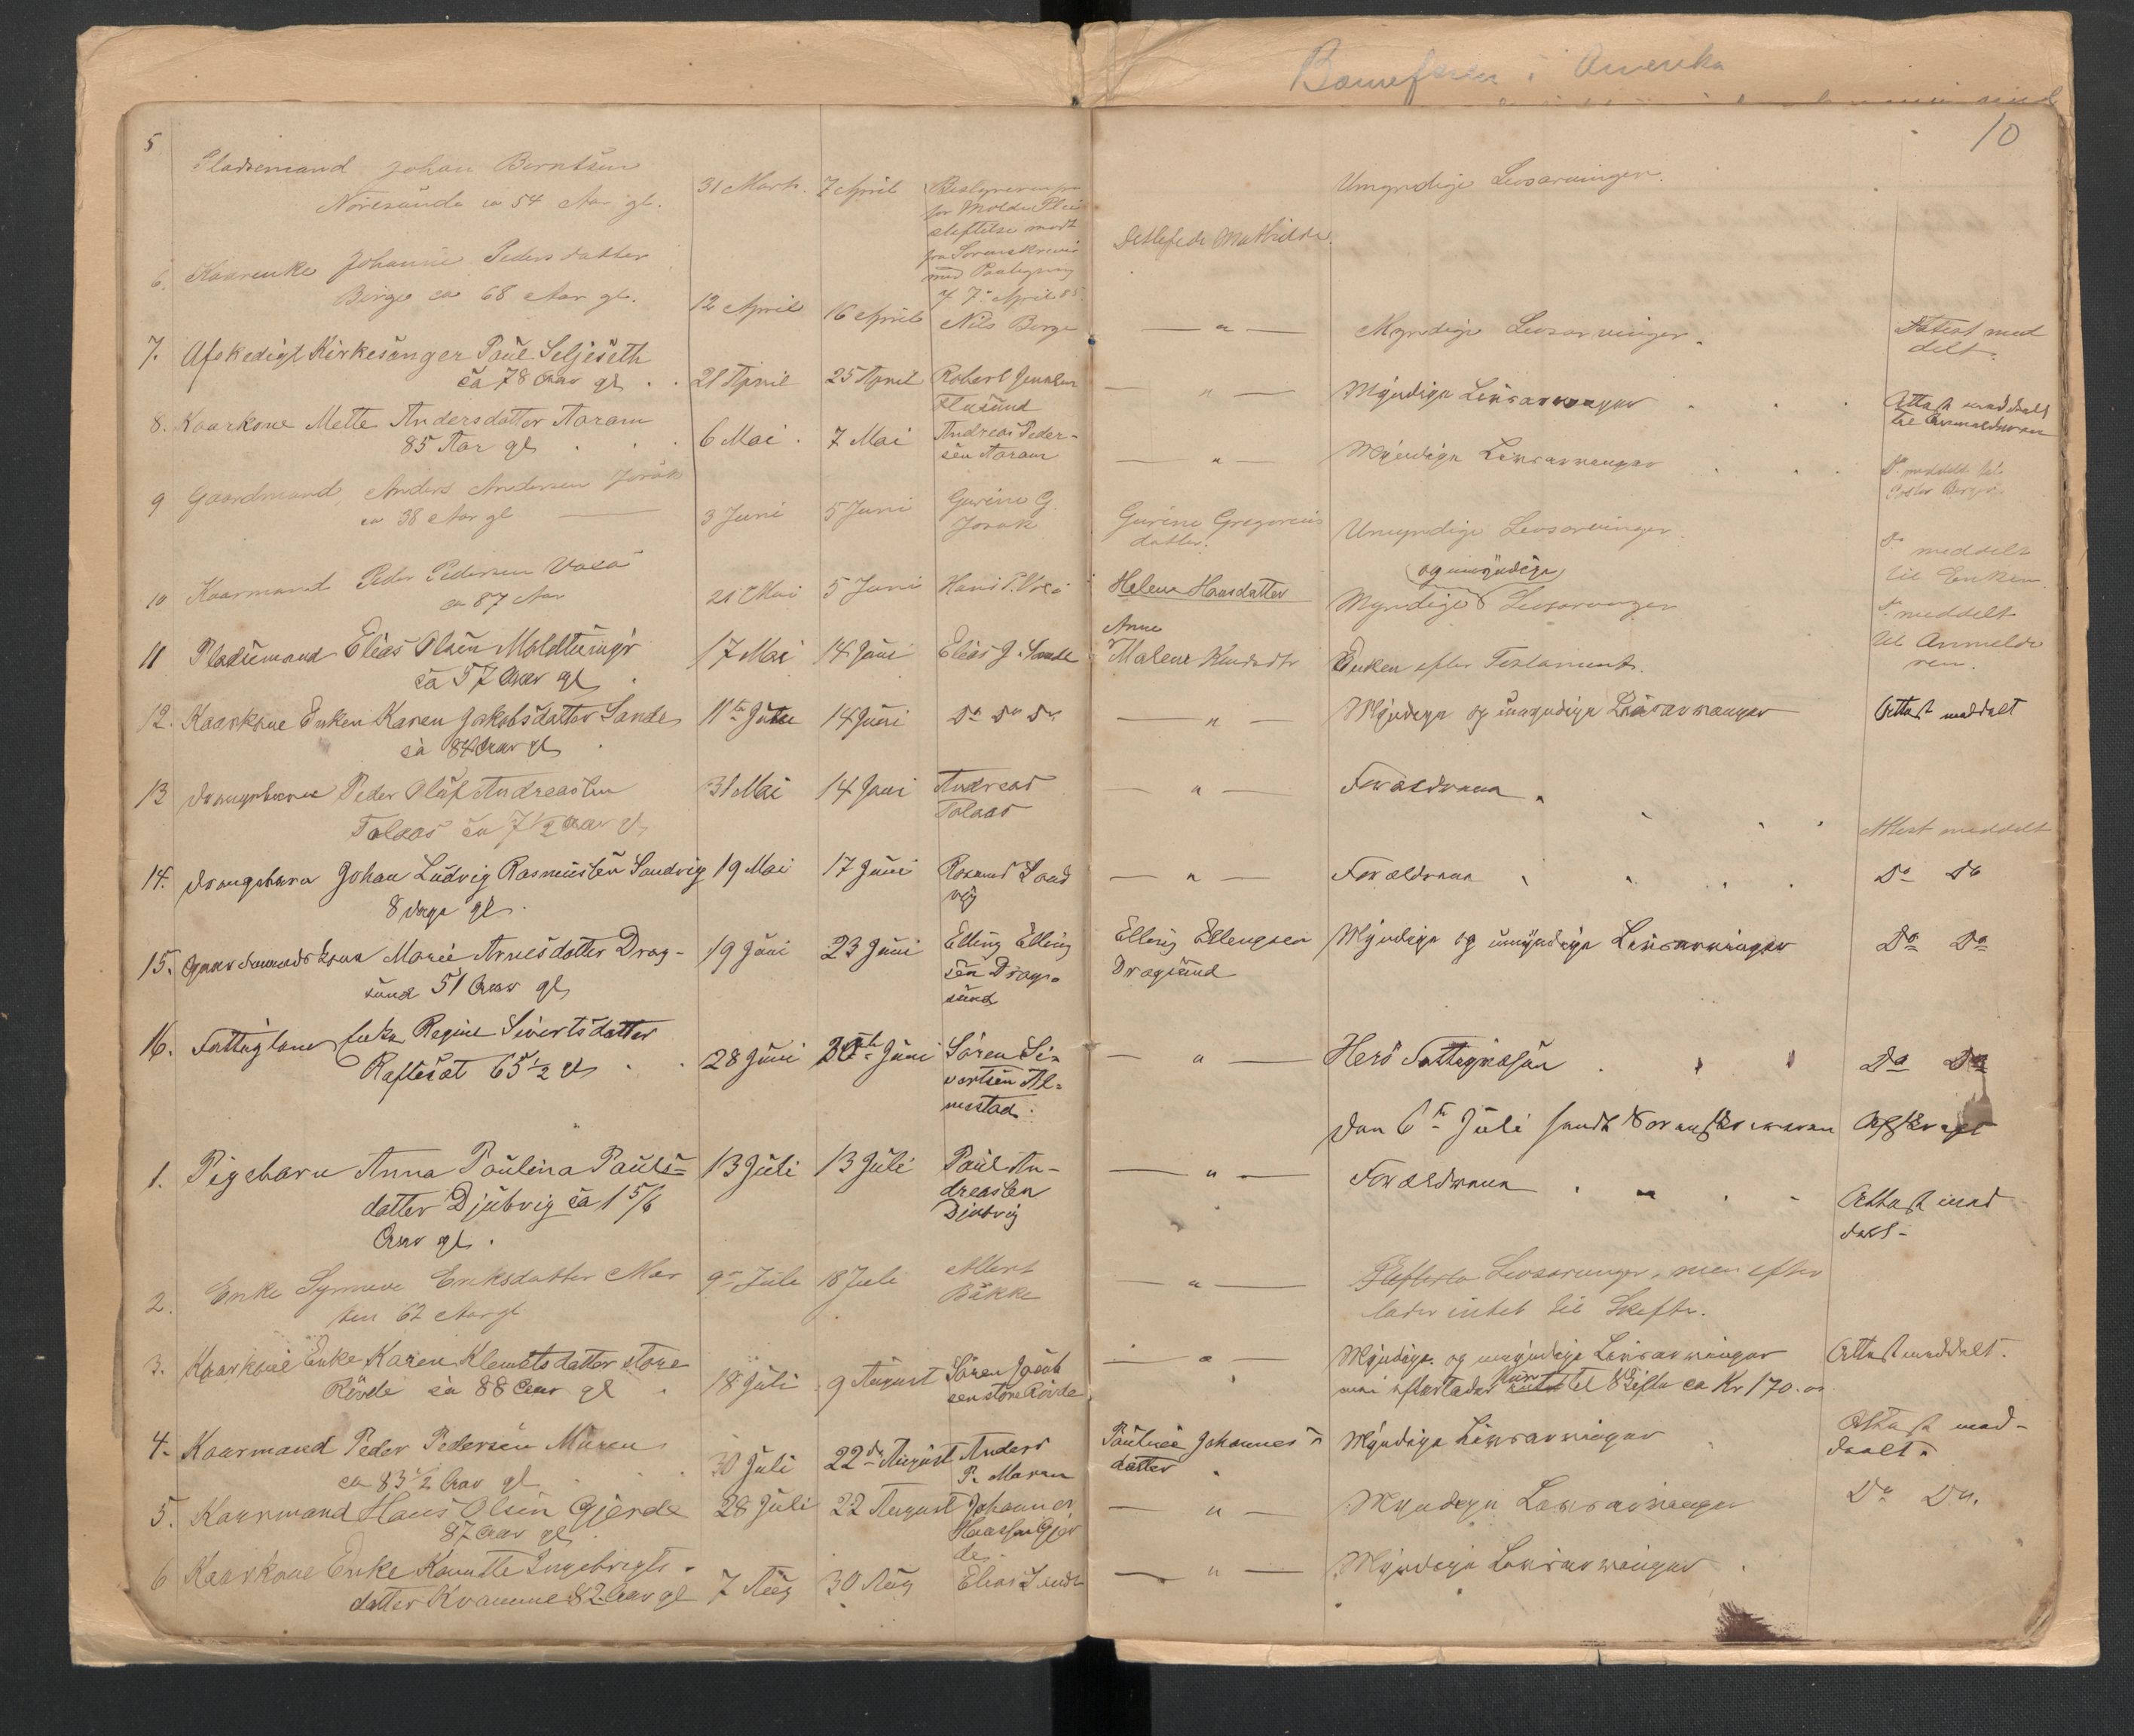 Barnefaren i Amerika
10
5 Pladsemand Johan Berntsen
Nöresunde ca 54 Aar gl.
31 Marts. 7 April
for Molde
Umyndige Livsarvinger.
Mathilde
6. Kaarenke Johanne Pedersdatter
Berge ca 68 Aar gl.
12 April 16 April Nils Berge
— " — Myndige Livsarvinger.
Attest med
delt.
7. Afskediget Kirkesanger Paul Seljeseth
ca 78 Aar gl.
21 April 25 April Robert
Flusund
— " — Myndige Livsarvinger
Attest meddelt
til Anmelderen
8. Kaarkone Mette Andersdatter Aaram
85 Aar gl
6 Mai. 7 Mai Andreas Peder-
sen Aaram
— " — Myndige Livsarvinger
Do meddelt
9 Gaardmand Anders Andersen Jorak
ca 38 Aar gl
3 Juni 5 Juni Gurine G.
Jorak
Gurine Gregorius
datter.
Umyndige Livsarvinger
Do meddelt
til Enken.
10 Kaarmand Peder Pedersen Vaså
ca 87 Aar
21 Mai 5 Juni Hans P.
Helene Hansdatter
og umyndige
Myndige Livsarvinger
Do meddelt
til Anmelde
ren.
11 Pladsemand Elias Olsen Moldtungr
ca 57 Aar gl
17 Mai 14 Juni Elias J. Sande
Anne
Malene Knudsdtr
Enken efter Testament.
12. Kaarkone Enken Karen Jakobsdatter Sande
ca 84 Aar gl
11te Juni 14 Juni Do Do Do
— " — Myndige og umyndige Livsarvinger
Attest meddelt
13 Drengebarn Peder Oluf Andreassen
Tolaas ca 7 1/2 Aar gl
31 Mai 14 Juni Andreas
Tolaas
— " — Forældrene
Attest meddelt
14. Drengebarn Johan Ludvig Rasmussen Sandvig
8 Dage gl.
19 Mai 17 Juni Rasmus Sand
vig
— " — Forældrene
Do Do
15. Gaardmandskone Marie Arnesdatter Drag-
sund 51 Aar gl
19 Juni 23 Juni Elling Elling
sen Drag-
sund
Elling Ellingsen
Dragsund
Myndige og umyndige Livsarvinger
Do Do
16. Fattiglem Enke Regine Sivertsdatter
Raftesæt 65 1/2 gl
28 Juni 30te Juni Sören Si-
vertsen Al-
mestad.
— " — Herö Fattigkasse
Do Do
Den 6te Juli sendt Sorenskriveren Afskrift
1. Pigebarn Anna Paulina Pauls-
datter Djubvig ca 1 5/6
Aar gl.
13 Juli 13 Juli Paul An-
dreassen
Djubvig
— " — Forældrene
Attest med
delt-
2. Enke Synneve Eriksdatter Mor
ken 62 Aar gl
9de Juli 18 Juli Albert
Bakke
— " — Livsarvinger, men efter
lader intet til Skifte.
3. Kaarkone Enke Karen Klemetsdatter store
Rövde ca 88 Aar gl
18 Juli 9 August Sören Jacob
sen store Rövde
— " — Myndige og umyndige Livsarvinger
men efterlader Kun intet til Skifte ca Kr 170.00
Attest meddelt.
4. Kaarmand Peder Pedersen Muren
ca 83 1/2 Aar gl
30 Juli 22de August Anders
P. Muren
Pauline Johannes
datter
Myndige Livsarvinger
Attest med-
deelt.
5. Kaarmand Hans Olsen Gjerde
87 Aar gl
28 Juli 22 August Johannes
Hanssen Gjer
de.
— " — Myndige Livsarvinger
Do Do.
6 Kaarkone Enke Kanutte Ingebrigts-
datter Kvamme 82 Aar gl
7 Aug 30 Aug Elias Sande
— " — Myndige Livsarvinger